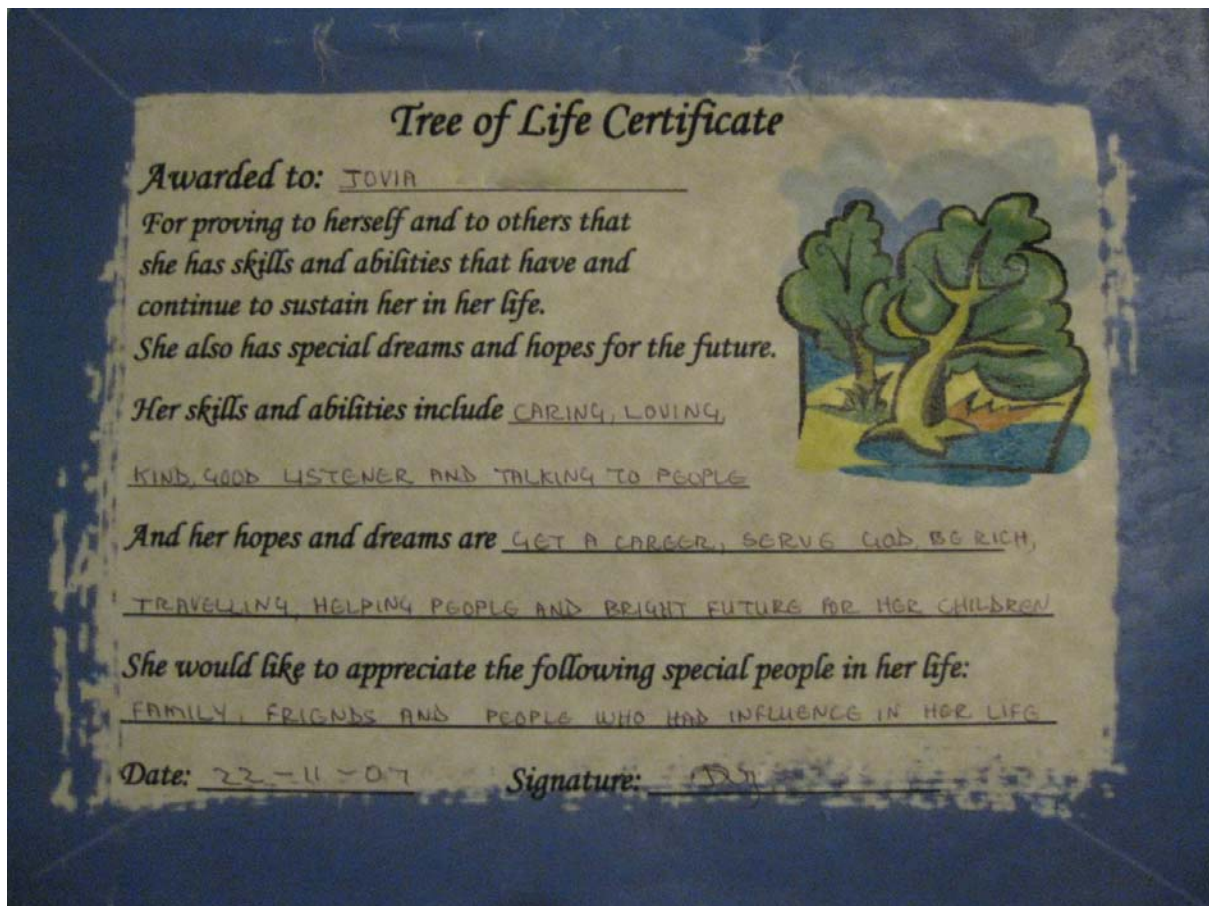 Tree of Life Certificate
Awarded to: JOVIA
For proving to herself and to others that
she has skills and abilities that have and
continue to sustain her in her life.
She also has special dreams and hopes for the future.
Her skills and abilities include CARING, LOVING,
KIND, GOOD LISTENER AND TALKING TO PEOPLE
And her hopes and dreams are GET A CAREER, SERVE GOD, BE RICH,
TRAVELLING, HELPING PEOPLE AND BRIGHT FUTURE FOR HER CHILDREN
She would like to appreciate the following special people in her life:
FAMILY, FRIENDS AND PEOPLE WHO HAD INFLUENCE IN HER LIFE
Date: 22-11-07 Signature: